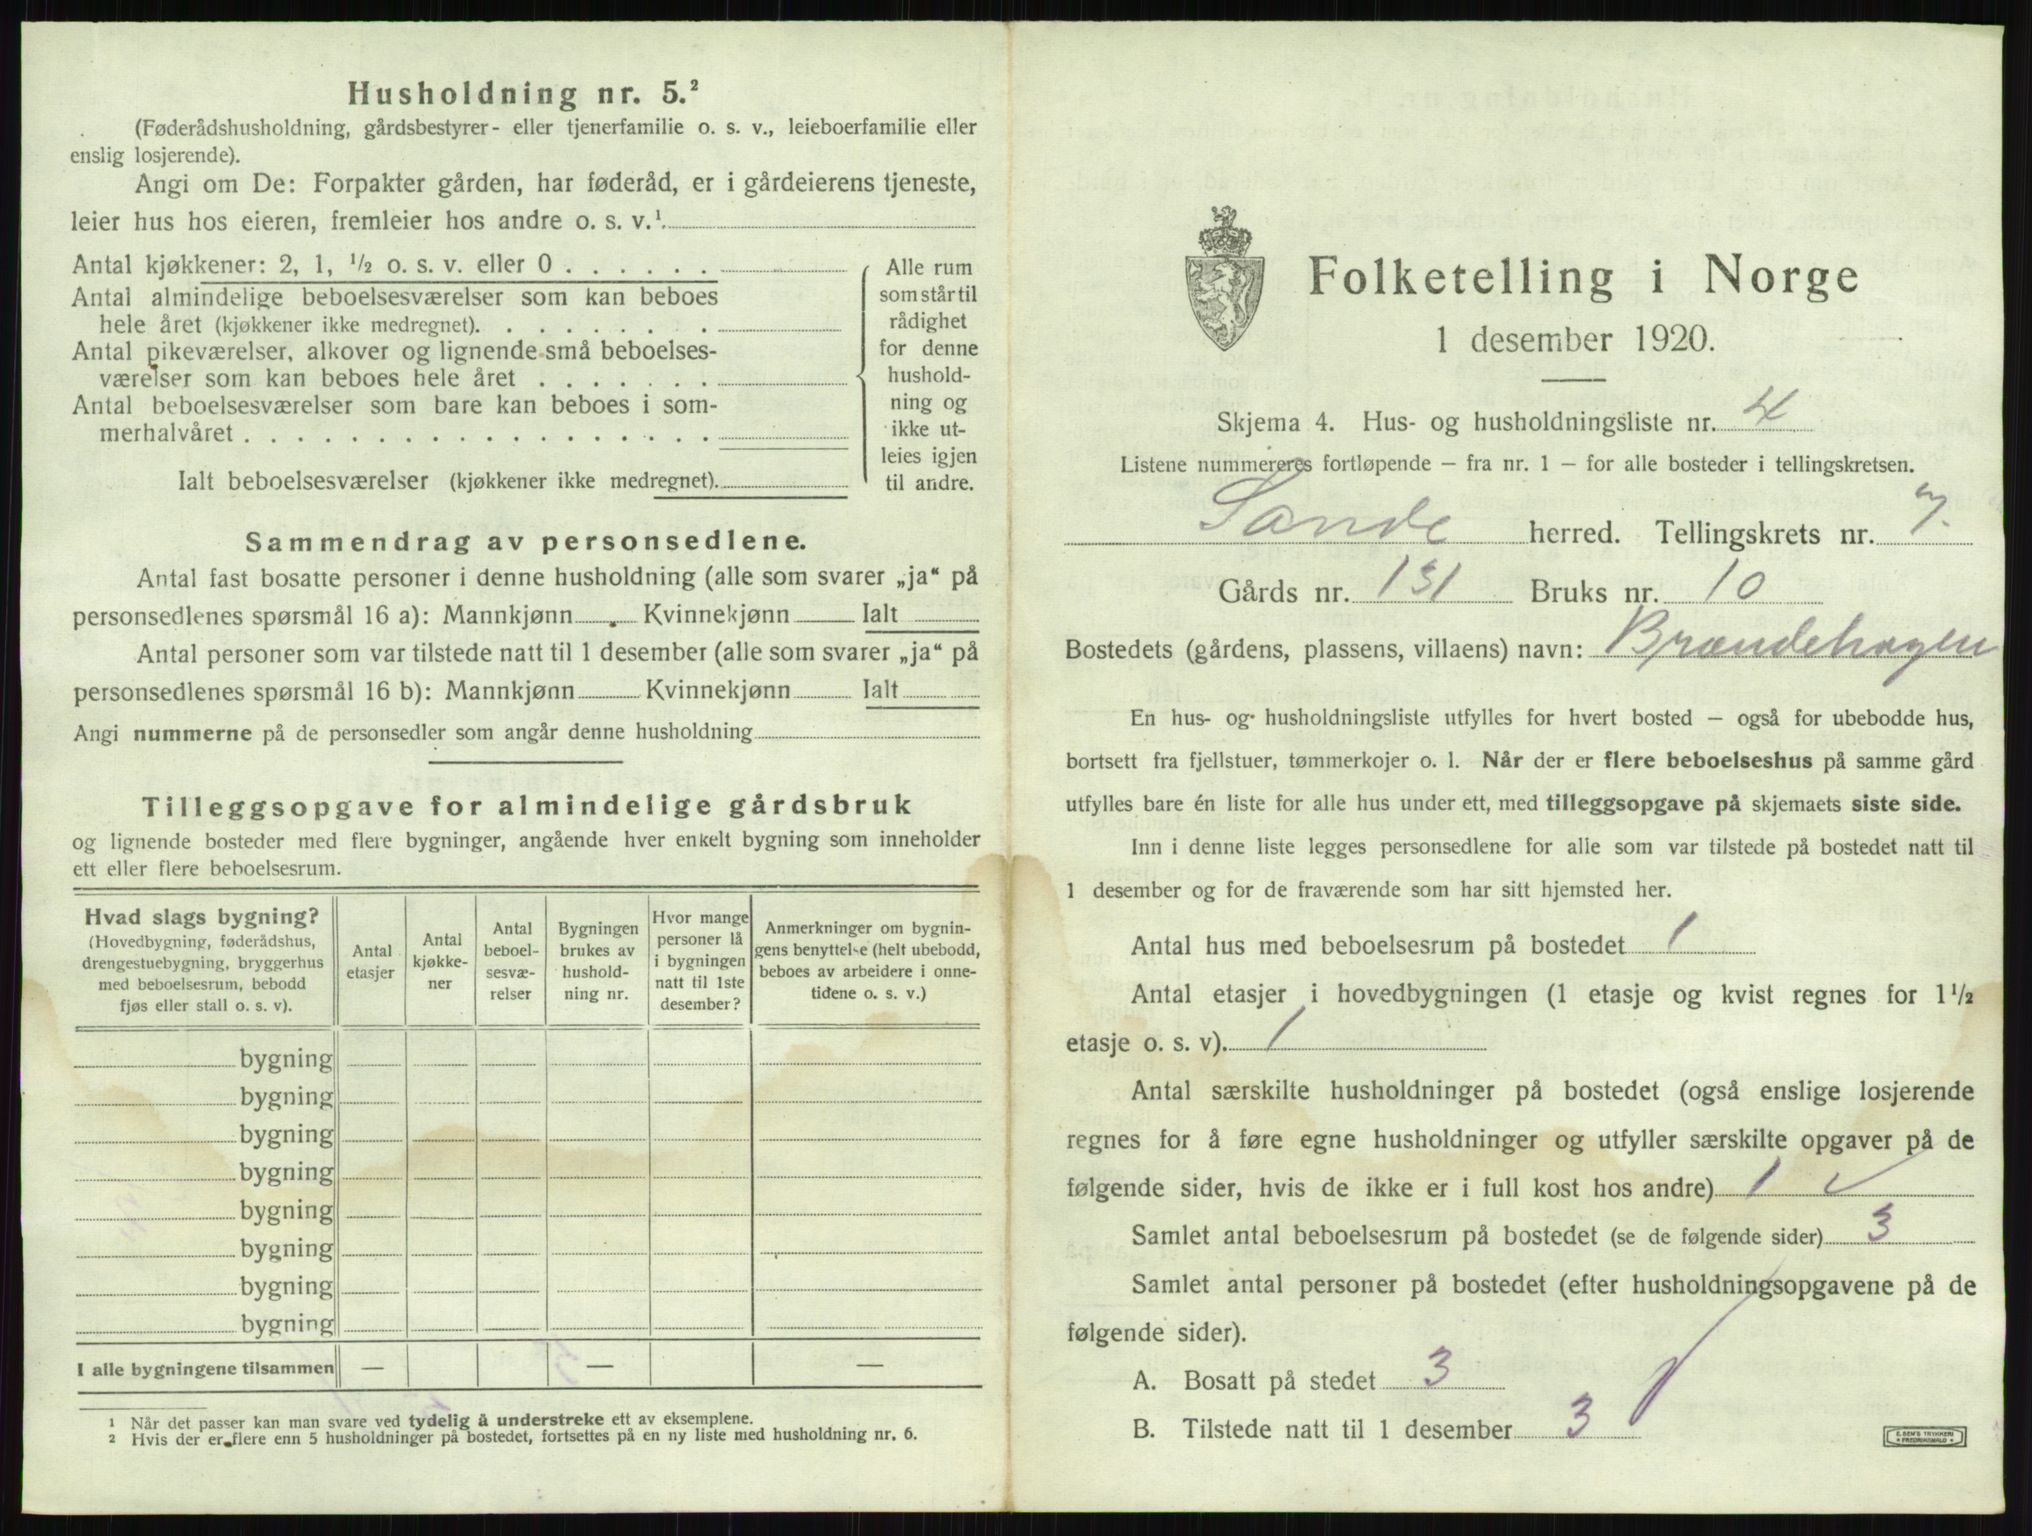 Husholdning nr. 5.²
(Føderådshusholdning, gårdsbestyrer- eller tjenerfamilie o. s. v., leieboerfamilie eller
enslig losjerende).
Angi om De: Forpakter gården, har føderåd, er i gårdeierens tjeneste,
leier hus hos eieren, fremleier hos andre o. s. v.¹
Antal kjøkkener: 2, 1, ½ o. s. v. eller 0 . . . . . .
Antal almindelige beboelsesværelser som kan beboes
hele året (kjøkkener ikke medregnet). . . . . . . .
Antal pikeværelser, alkover og lignende små beboelses-
værelser som kan beboes hele året . . . . . . .
Antal beboelsesværelser som bare kan beboes i som-
merhalvåret . . . . . . . . . . . . . . . . . .
Ialt beboelsesværelser (kjøkkener ikke medregnet).
Alle rum
som står til
rådighet
for denne
hushold-
ning og
ikke ut-
leies igjen
til andre.
Sammendrag av personsedlene.
Antal fast bosatte personer i denne husholdning (alle som svarer „ja“ på
personsedlenes spørsmål 16 a): Mannkjønn Kvinnekjønn Ialt
Antal personer som var tilstede natt til 1 desember (alle som svarer „ja“ på
personsedlenes spørsmål 16 b): Mannkjønn Kvinnekjønn Ialt
Angi nummerne på de personsedler som angår denne husholdning
Tilleggsopgave for almindelige gårdsbruk
og lignende bosteder med flere bygninger, angående hver enkelt bygning som inneholder
ett eller flere beboelsesrum.
Hvad slags bygning?
(Hovedbygning, føderådshus,
drengestuebygning, bryggerhus
med beboelsesrum, bebodd
fjøs eller stall o. s. v).
Antal
etasjer
Antal
kjøkke-
ner
Antal
beboel-
sesvæ-
relser
Bygningen
brukes av
hushold-
ning nr.
Hvor mange
personer lå
i bygningen
natt til 1ste
desember?
Anmerkninger om bygnin-
gens benyttelse (helt ubebodd,
beboes av arbeidere i onne-
tidene o. s. v.)
bygning
bygning
bygning
bygning
bygning
bygning
bygning
bygning
I alle bygningene tilsammen — — —
¹ Når det passer kan man svare ved tydelig å understreke ett av eksemplene.
² Hvis der er flere enn 5 husholdninger på bostedet, fortsettes på en ny liste med husholdning nr. 6.
Folketelling i Norge
1 desember 1920.
Skjema 4. Hus- og husholdningsliste nr. 4
Listene nummereres fortløpende – fra nr. 1 – for alle bosteder i tellingskretsen.
Sande herred. Tellingskrets nr. 7.
Gårds nr. 131 Bruks nr. 10
Bostedets (gårdens, plassens, villaens) navn: Brændehagen
En hus- og husholdningsliste utfylles for hvert bosted – også for ubebodde hus,
bortsett fra fjellstuer, tømmerkojer o. l. Når der er flere beboelseshus på samme gård
utfylles bare én liste for alle hus under ett, med tilleggsopgave på skjemaets siste side.
Inn i denne liste legges personsedlene for alle som var tilstede på bostedet natt til
1 desember og for de fraværende som har sitt hjemsted her.
Antal hus med beboelsesrum på bostedet 1
Antal etasjer i hovedbygningen (1 etasje og kvist regnes for 1½
etasje o. s. v). 1
Antal særskilte husholdninger på bostedet (også enslige losjerende
regnes for å føre egne husholdninger og utfyller særskilte opgaver på de
følgende sider, hvis de ikke er i full kost hos andre) 1 ✓
Samlet antal beboelsesrum på bostedet (se de følgende sider) 3
Samlet antal personer på bostedet (efter husholdningsopgavene på de
følgende sider).
A. Bosatt på stedet 3
B. Tilstede natt til 1 desember 3
E. SEM'S TRYKKERI
FREDRIKSHALD